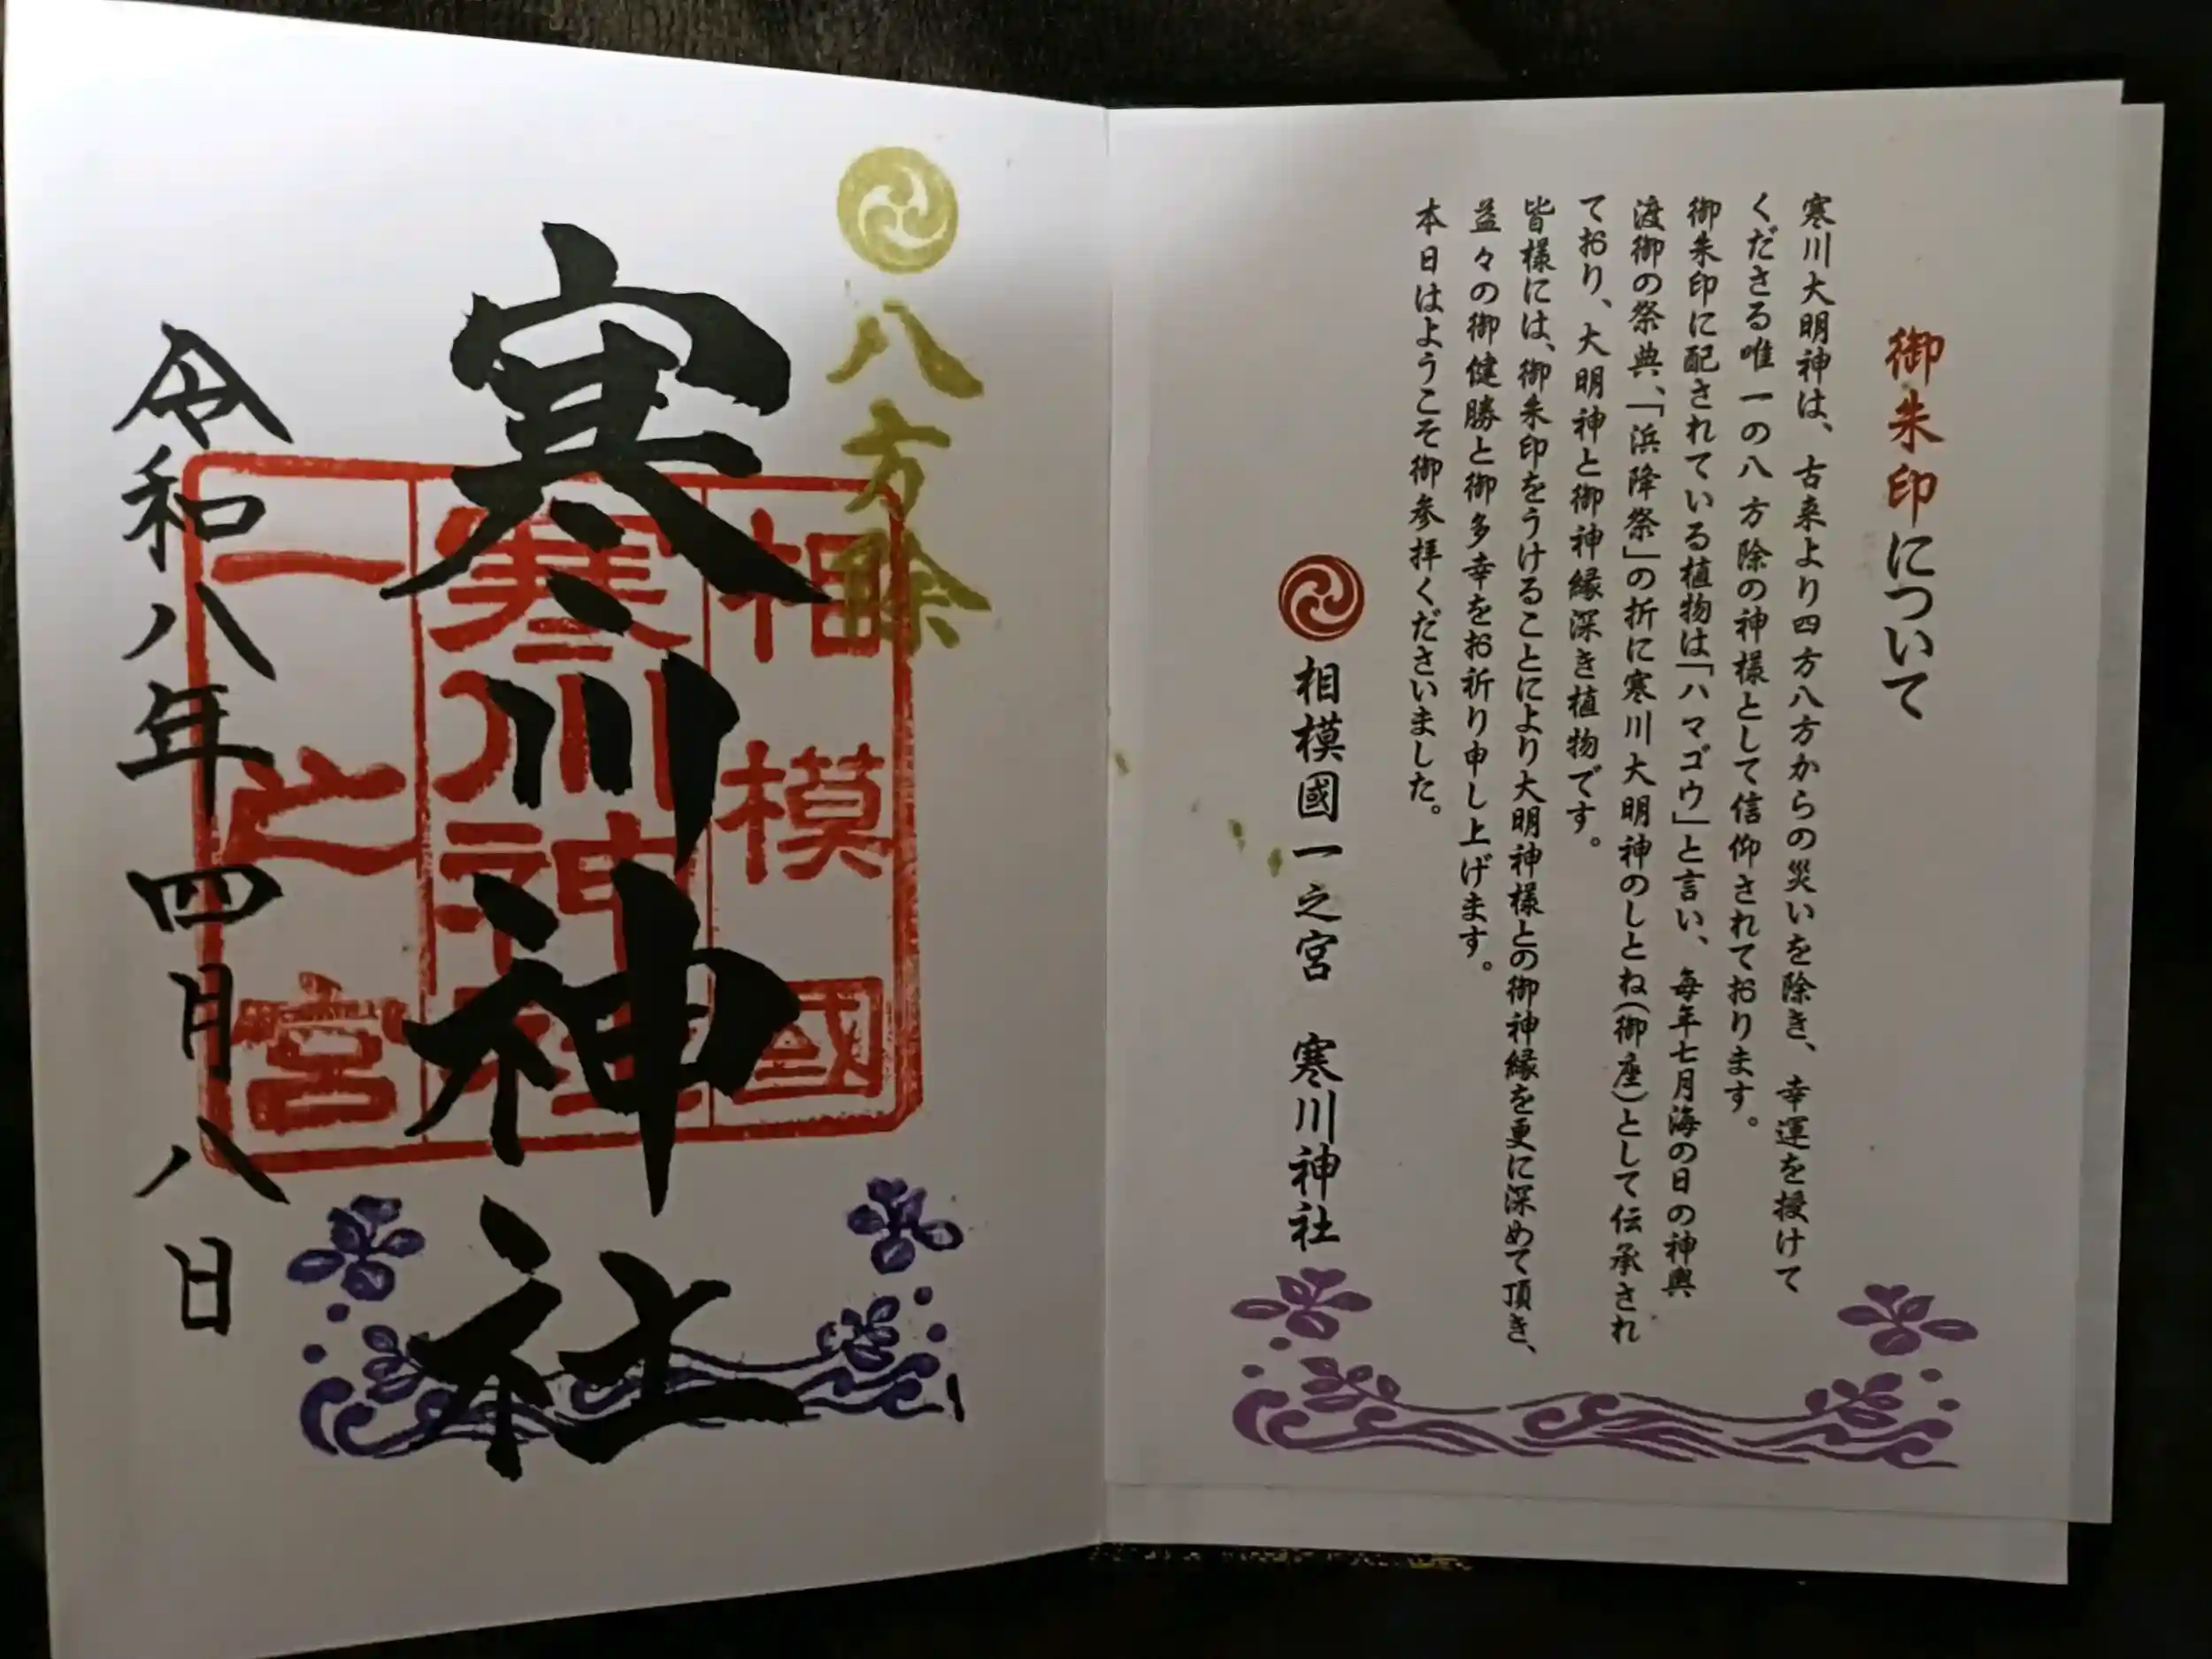 御朱印について
寒川大明神は、古来より四方八方からの災いを除き、幸運を授けて
くださる唯一の八方除の神様として信仰されております。
御朱印に配されている植物は「ハマゴウ」と言い、毎年七月海の日の神輿
渡御の祭典、「浜降祭」の折に寒川大明神のしとね(御座)として伝承され
ており、大明神と御神縁深き植物です。
皆様には、御朱印をうけることにより大明神様との御神縁を更に深めて頂き、
益々の御健勝と御多幸をお祈り申し上げます。
本日はようこそ御参拝くださいました。
相模國一之宮 寒川神社
八方除
相模國
寒川神社
一之宮
寒川神社
令和八年四月八日